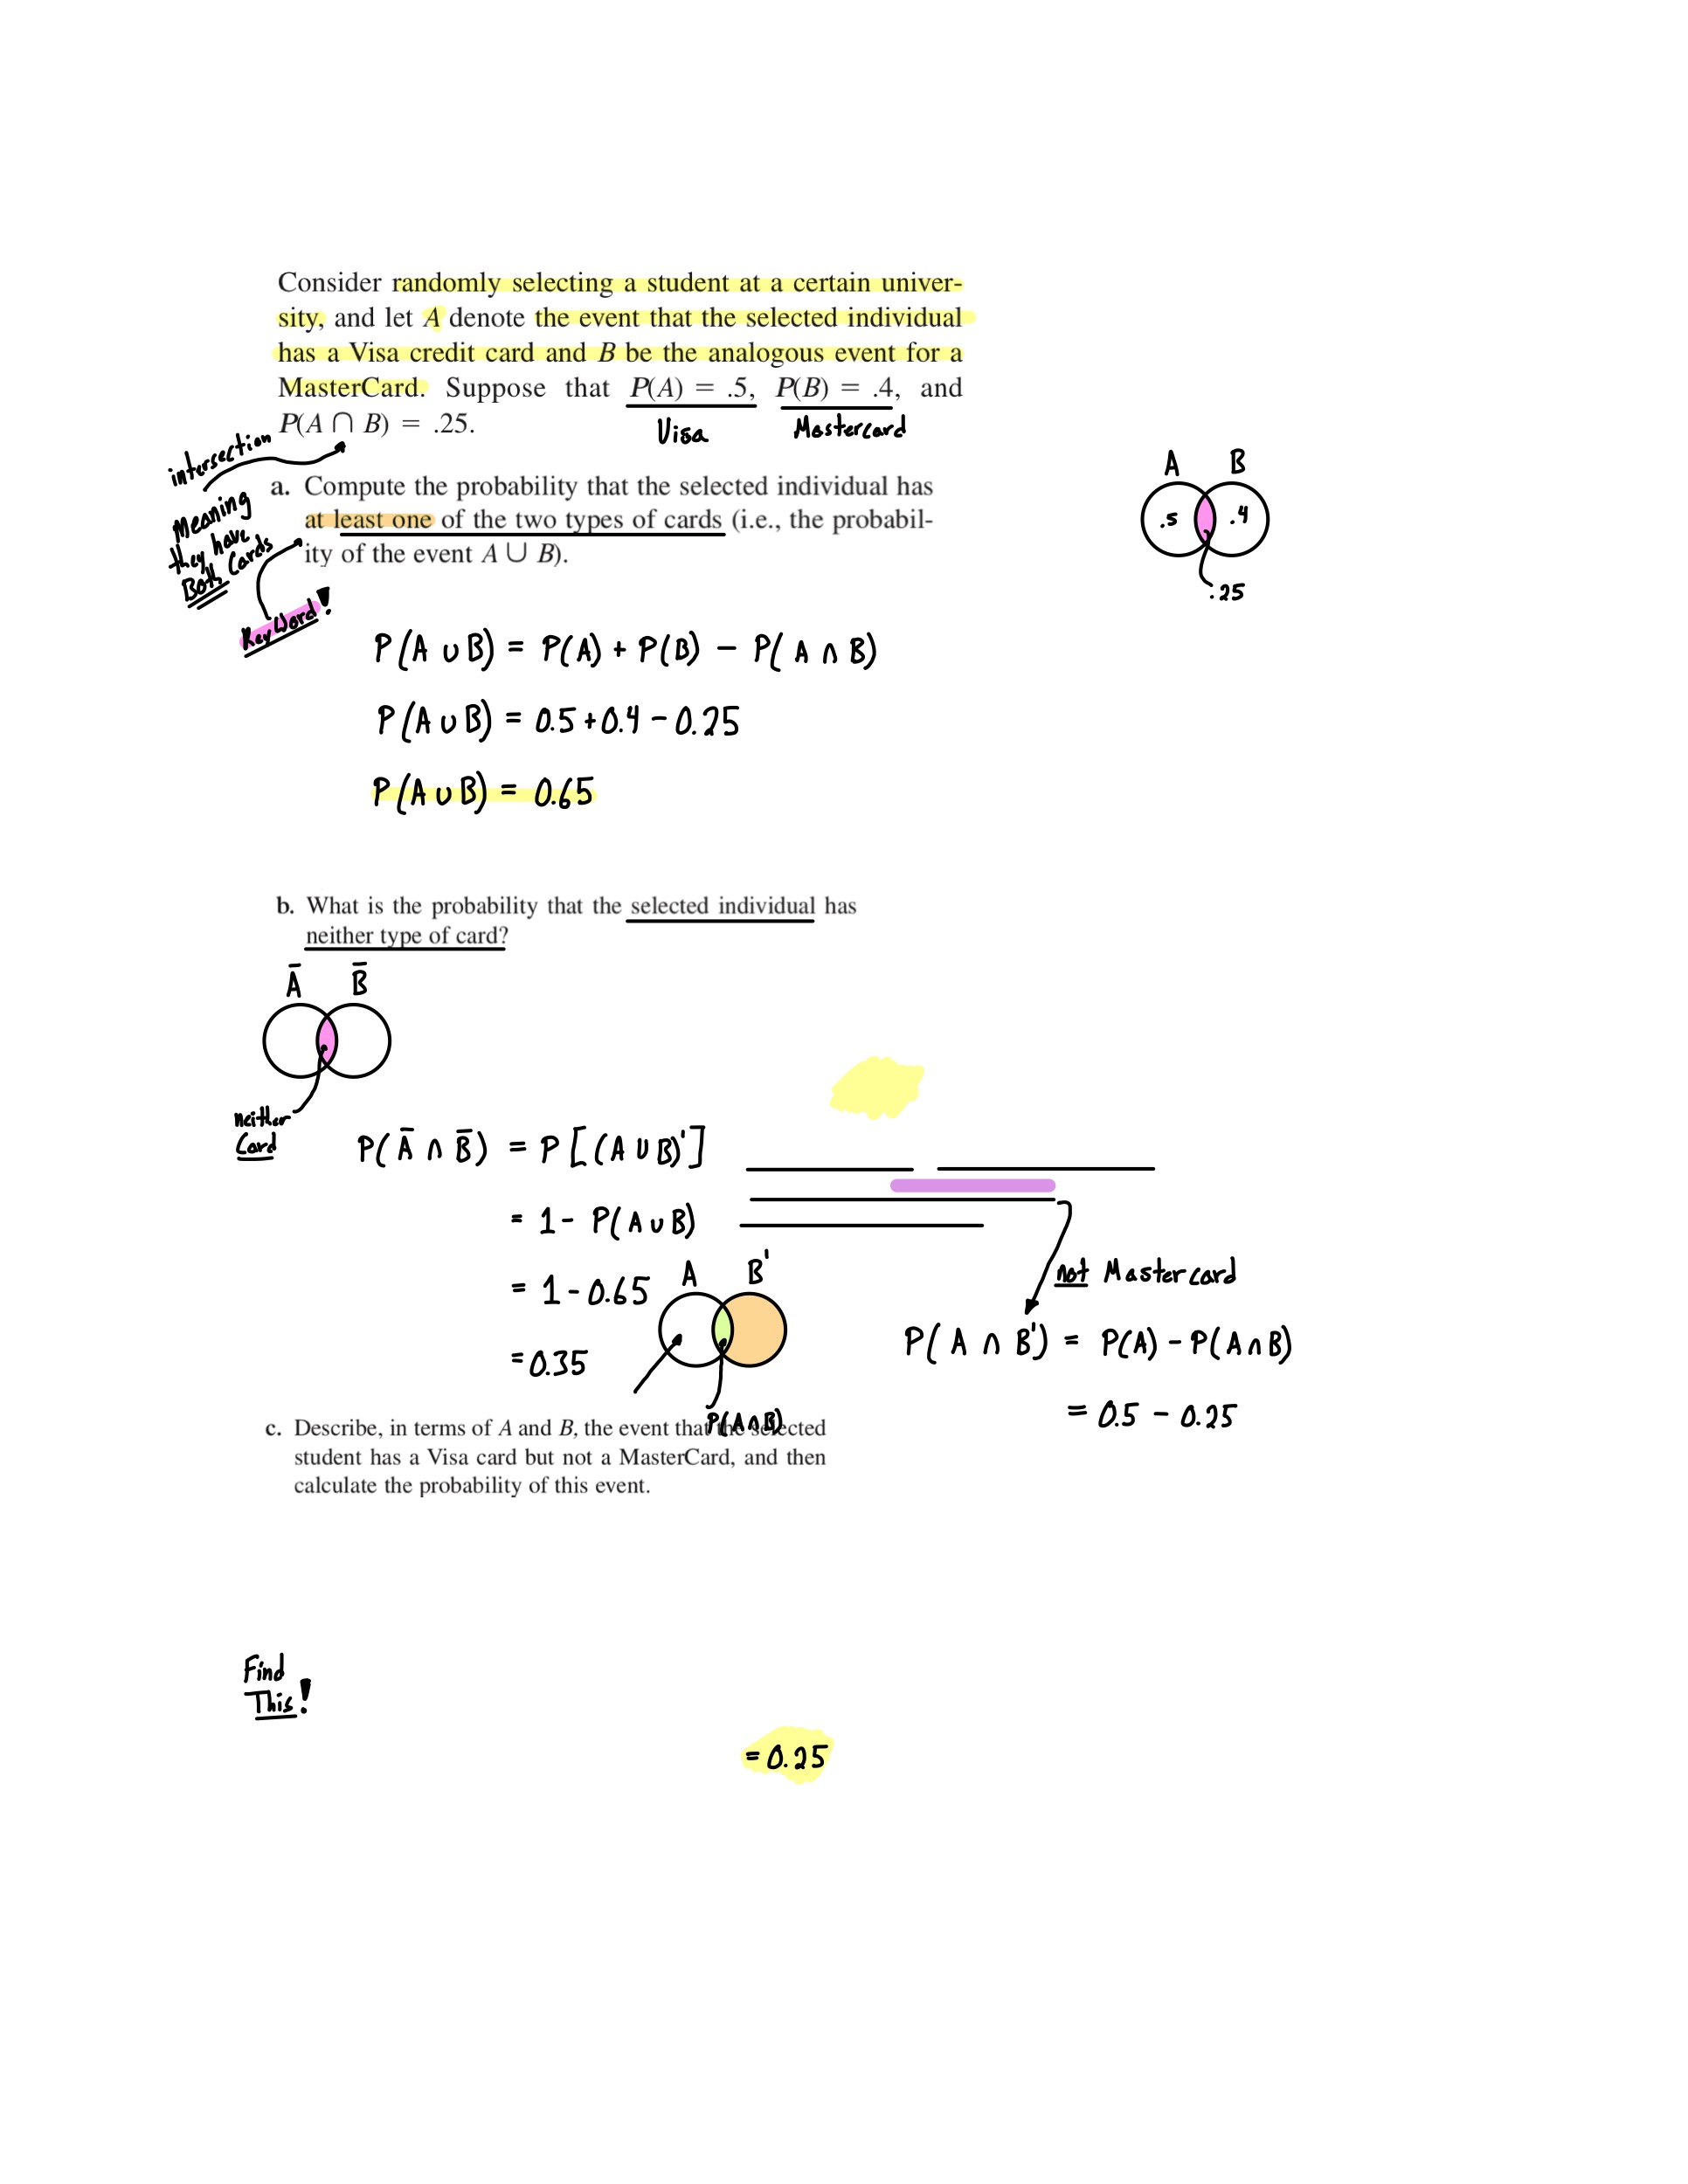 Consider randomly selecting a student at a certain univer-
sity, and let A denote the event that the selected individual
has a Visa credit card and B be the analogous event for a
MasterCard. Suppose that P(A) = .5, P(B) = .4, and
P(A ∩ B) = .25.
Visa
Mastercard
intersection
Meaning
they have
Both Cards
Key Word!
a. Compute the probability that the selected individual has
at least one of the two types of cards (i.e., the probabil-
ity of the event A ∪ B).
A B
.5 .4
.25
P(A ∪ B) = P(A) + P(B) − P(A ∩ B)
P(A ∪ B) = 0.5 + 0.4 − 0.25
P(A ∪ B) = 0.65
b. What is the probability that the selected individual has
neither type of card?
Ā B̄
neither
Card
P(Ā ∩ B̄) = P[(A ∪ B)']
= 1 - P(A ∪ B)
= 1 - 0.65
= 0.35
A B'
P(A∩B)
not Mastercard
P(A ∩ B') = P(A) - P(A∩B)
= 0.5 - 0.25
c. Describe, in terms of A and B, the event that the selected
student has a Visa card but not a MasterCard, and then
calculate the probability of this event.
Find
This!
= 0.25